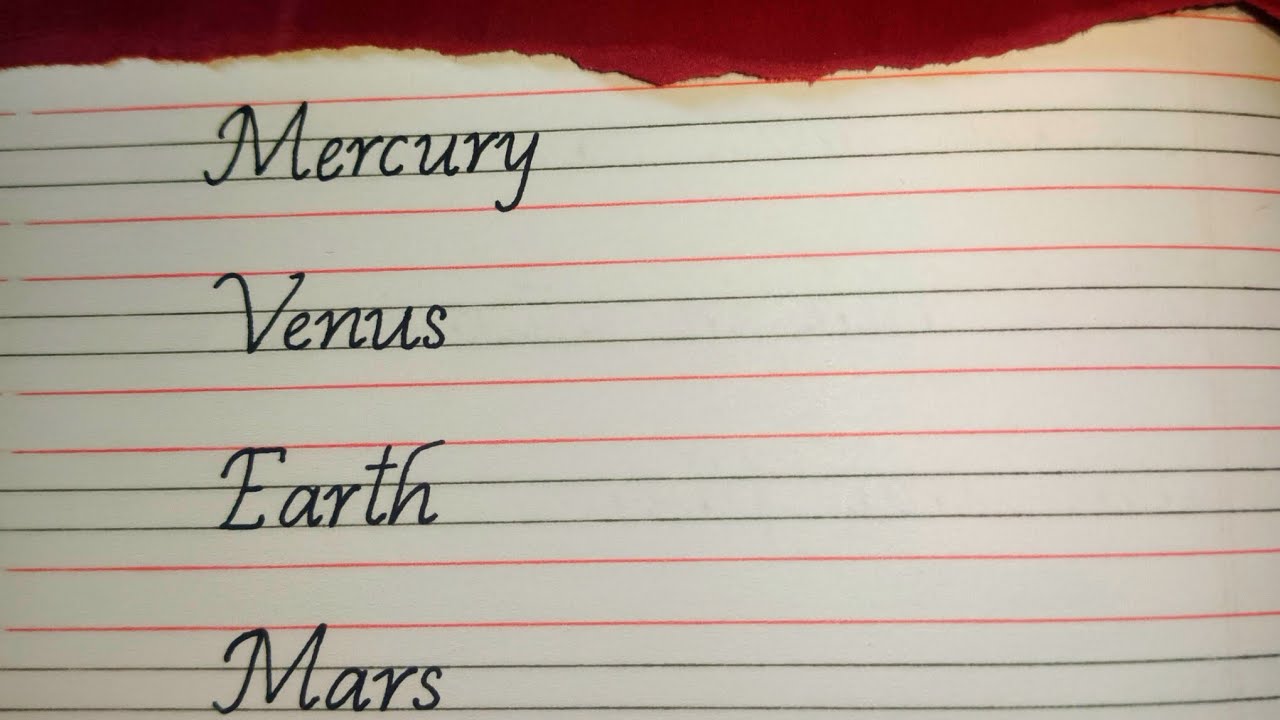 Mercury
Venus
Earth
Mars